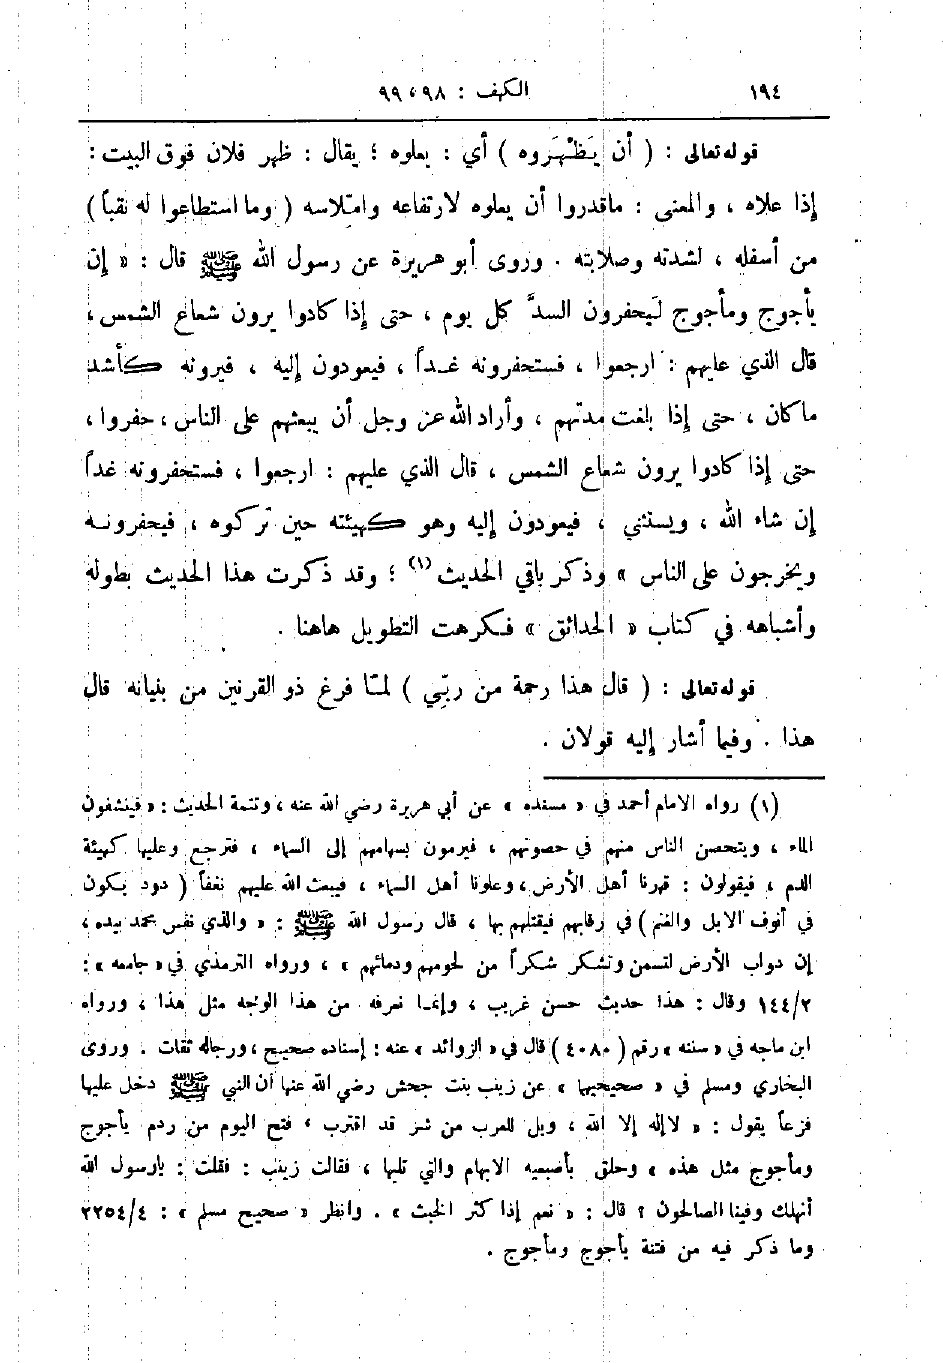 ١٩٤ الكهف : ٩٨ ، ٩٩
قوله تعالى : ( أن يَظْهَروه ) أي : يعلوه ؛ يقال : ظهر فلان فوق البيت :
إذا علاه ، والمعنى : ماقدروا أن يعلوه لارتفاعه وامّلاسه ( وما استطاعوا له نقباً )
من أسفله ، لشدته وصلابته . وروى أبو هريرة عن رسول الله ﷺ قال : « إن
يأجوج ومأجوج لَيحفرون السدَّ كل يوم ، حتى إذا كادوا يرون شعاع الشمس ،
قال الذي عليهم : ارجعوا ، فستحفرونه غـداً ، فيعودون إليه ، فيرونه كأشد
ماكان ، حتى إذا بلغت مدتهم ، وأراد الله عز وجل أن يبعثهم على الناس ، حفروا ،
حتى إذا كادوا يرون شعاع الشمس ، قال الذي عليهم : ارجعوا ، فستحفرونه غداً
إن شاء الله ، ويستثني ، فيعودون إليه وهو كهيئته حين تركوه ، فيحفرونـه
ويخرجون على الناس » وذكر باقي الحديث (١) ؛ وقد ذكرت هذا الحديث بطوله
وأشباهه في كتاب « الحدائق » فكرهت التطويل هاهنا .
قوله تعالى : ( قال هذا رحمة من ربّي ) لمّا فرغ ذو القرنين من بنيانه قال
هذا . وفيما أشار إليه قولان .
(١) رواه الامام أحمد في « مسنده » عن أبي هريرة رضي الله عنه ، وتتمة الحديث : « فينشفون
الماء ، ويتحصن الناس منهم في حصونهم ، فيرمون بسهامهم إلى السماء ، فترجع وعليها كهيئة
الدم ، فيقولون : قهرنا أهل الأرض ، وعلونا أهل السماء ، فيبعث الله عليهم نغفاً ( دود يكون
في أنوف الابل والغنم ) في رقابهم فيقتلهم بها ، قال رسول الله ﷺ : « والذي نفس محمد بيده ،
إن دواب الأرض لتسمن وتشكر شكراً من لحومهم ودمائهم » ، ورواه الترمذي في « جامعه » :
١٤٤/٢ وقال : هذا حديث حسن غريب ، وإنمـا نعرفه من هذا الوجه مثل هذا ، ورواه
ابن ماجه في « سننه » رقم ( ٤٠٨٠ ) قال في « الزوائد » عنه : إسناده صحيح ، ورجاله ثقات . وروى
البخاري ومسلم في « صحيحيهما » عن زينب بنت جحش رضي الله عنها أن النبي ﷺ دخل عليها
فزعاً يقول : « لاإله إلا الله ، ويل للعرب من شر قد اقترب ، فتح اليوم من ردم يأجوج
ومأجوج مثل هذه » وحلق بأصبعيه الابهام والتي تليها ، فقالت زينب : فقلت : يارسول الله
أنهلك وفينا الصالحون ؟ قال : « نعم إذا كثر الخبث » . وانظر « صحيح مسلم » : ٢٢٥٤/٤
وما ذكر فيه من فتنة يأجوج ومأجوج .